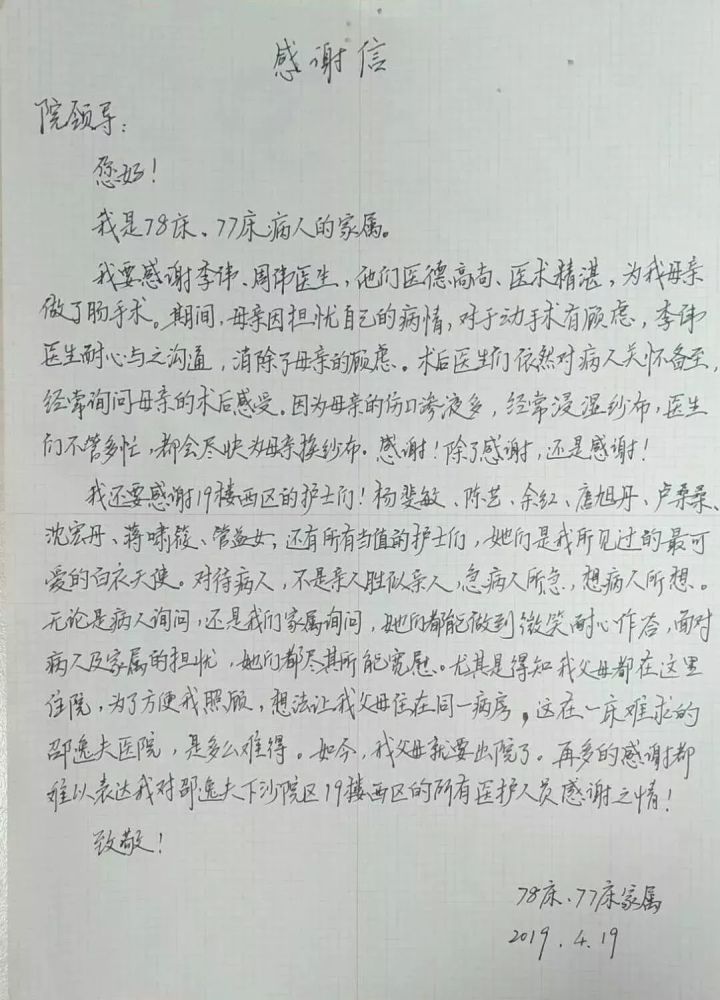 感谢信
院领导：
您好！
我是78床、77床病人的家属。
我要感谢李伟、周伟医生，他们医德高尚、医术精湛，为我母亲
做了肠手术。期间，母亲因担忧自己的病情，对于动手术有顾虑，李伟
医生耐心与之沟通，消除了母亲的顾虑。术后医生们依然对病人关怀备至，
经常询问母亲的术后感受。因为母亲的伤口渗液多，经常浸湿纱布，医生
们不管多忙，都会尽快为母亲换纱布。感谢！除了感谢，还是感谢！
我还要感谢19楼西区的护士们！杨斐敏、陈艺、余红、唐旭丹、卢桑桑、
沈宏丹、蒋啸筱、管益女，还有所有当值的护士们，她们是我所见过的最可
爱的白衣天使。对待病人，不是亲人胜似亲人，急病人所急，想病人所想。
无论是病人询问，还是我们家属询问，她们都能做到微笑耐心作答，面对
病人及家属的担忧，她们都尽其所能宽慰。尤其是得知我父母都在这里
住院，为了方便我照顾，想法让我父母住在同一病房，这在一床难求的
邵逸夫医院，是多么难得。如今，我父母就要出院了。再多的感谢都
难以表达我对邵逸夫下沙院区19楼西区的所有医护人员感谢之情！
致敬！
78床、77床家属
2019.4.19